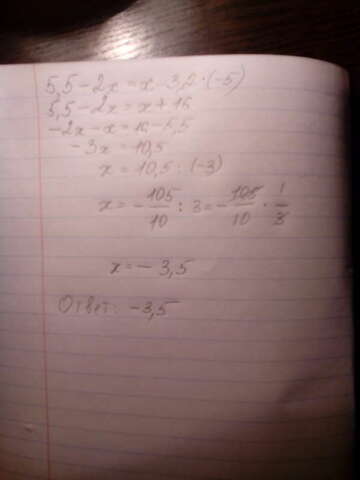 5,5 - 2x = x - 3,2 · (-5)
5,5 - 2x = x + 16
-2x - x = 16 - 5,5
-3x = 10,5
x = 10,5 : (-3)
x = - 105/10 : 3 = - 105/10 · 1/3
x = - 3,5
Ответ: -3,5